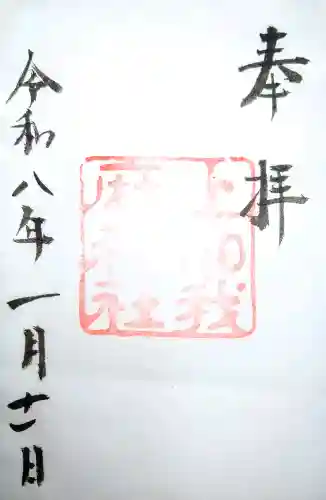 奉拝
令和八年一月十一日